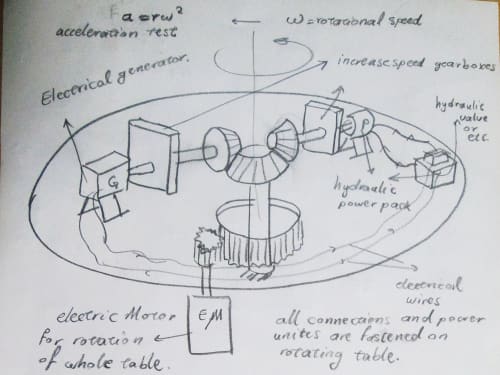 Fa=rω²
acceleration test
ω=rotational speed
increase speed gearboxes
Electrical generator.
hydraulic
valve
or
etc.
G
P
hydraulic
power pack
electrical
wires
E/M
electric Motor
for rotation
of whole table.
all connections and power
unites are fastened on
rotating table.